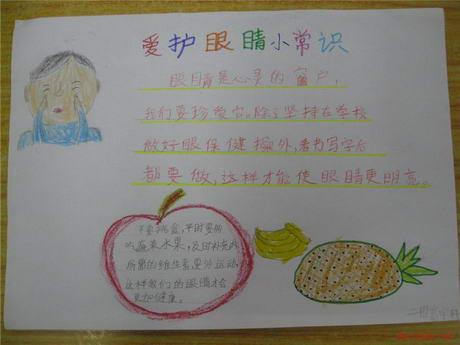 爱护眼睛小常识
眼睛是心灵的窗户,
我们要珍爱它。除了坚持在学校
做好眼保健操外,看书写字后
都要做,这样才能使眼睛更明亮。
不要挑食,平时要多吃
蔬菜水果,及时补充
所需的维生素,要多运动,
这样我们的眼睛才会
更加健康。